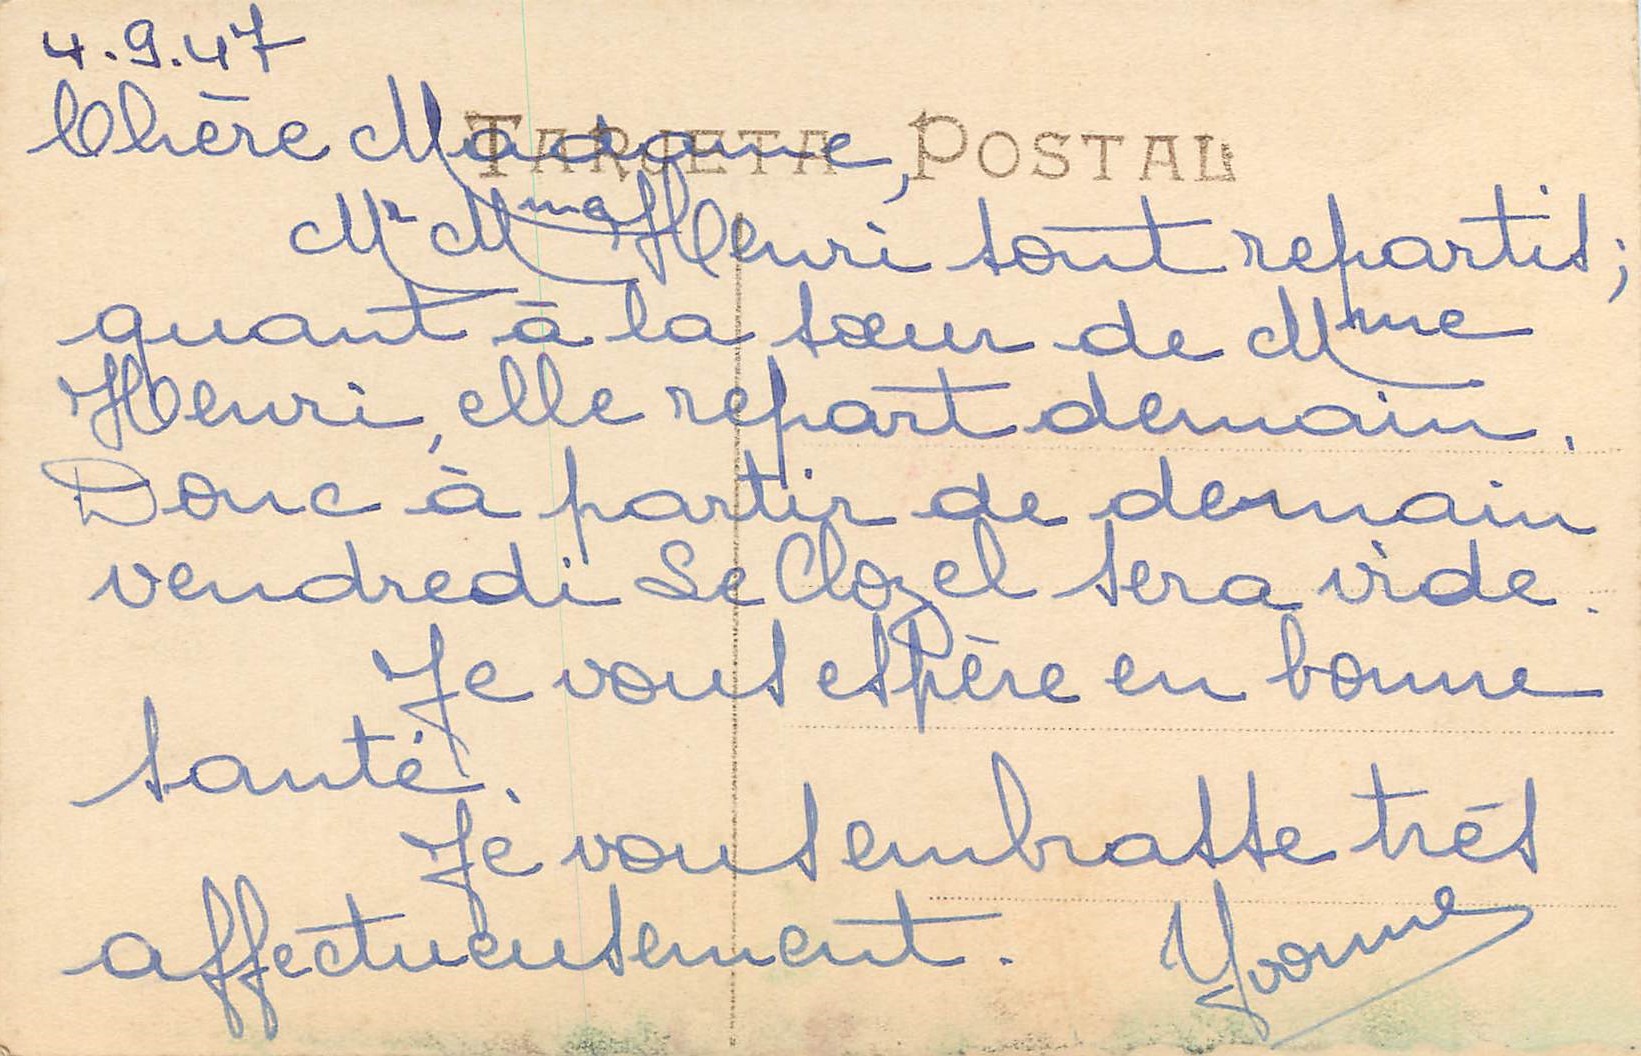 4.9.47
TARJETA POSTAL
Chère Madame,
Mr Mme Henri sont repartis;
quant à la sœur de Mme
Henri, elle repart demain.
Donc à partir de demain
vendredi Le Clozel sera vide.
Je vous espère en bonne
santé.
Je vous embrasse très
affectueusement. Yvonne